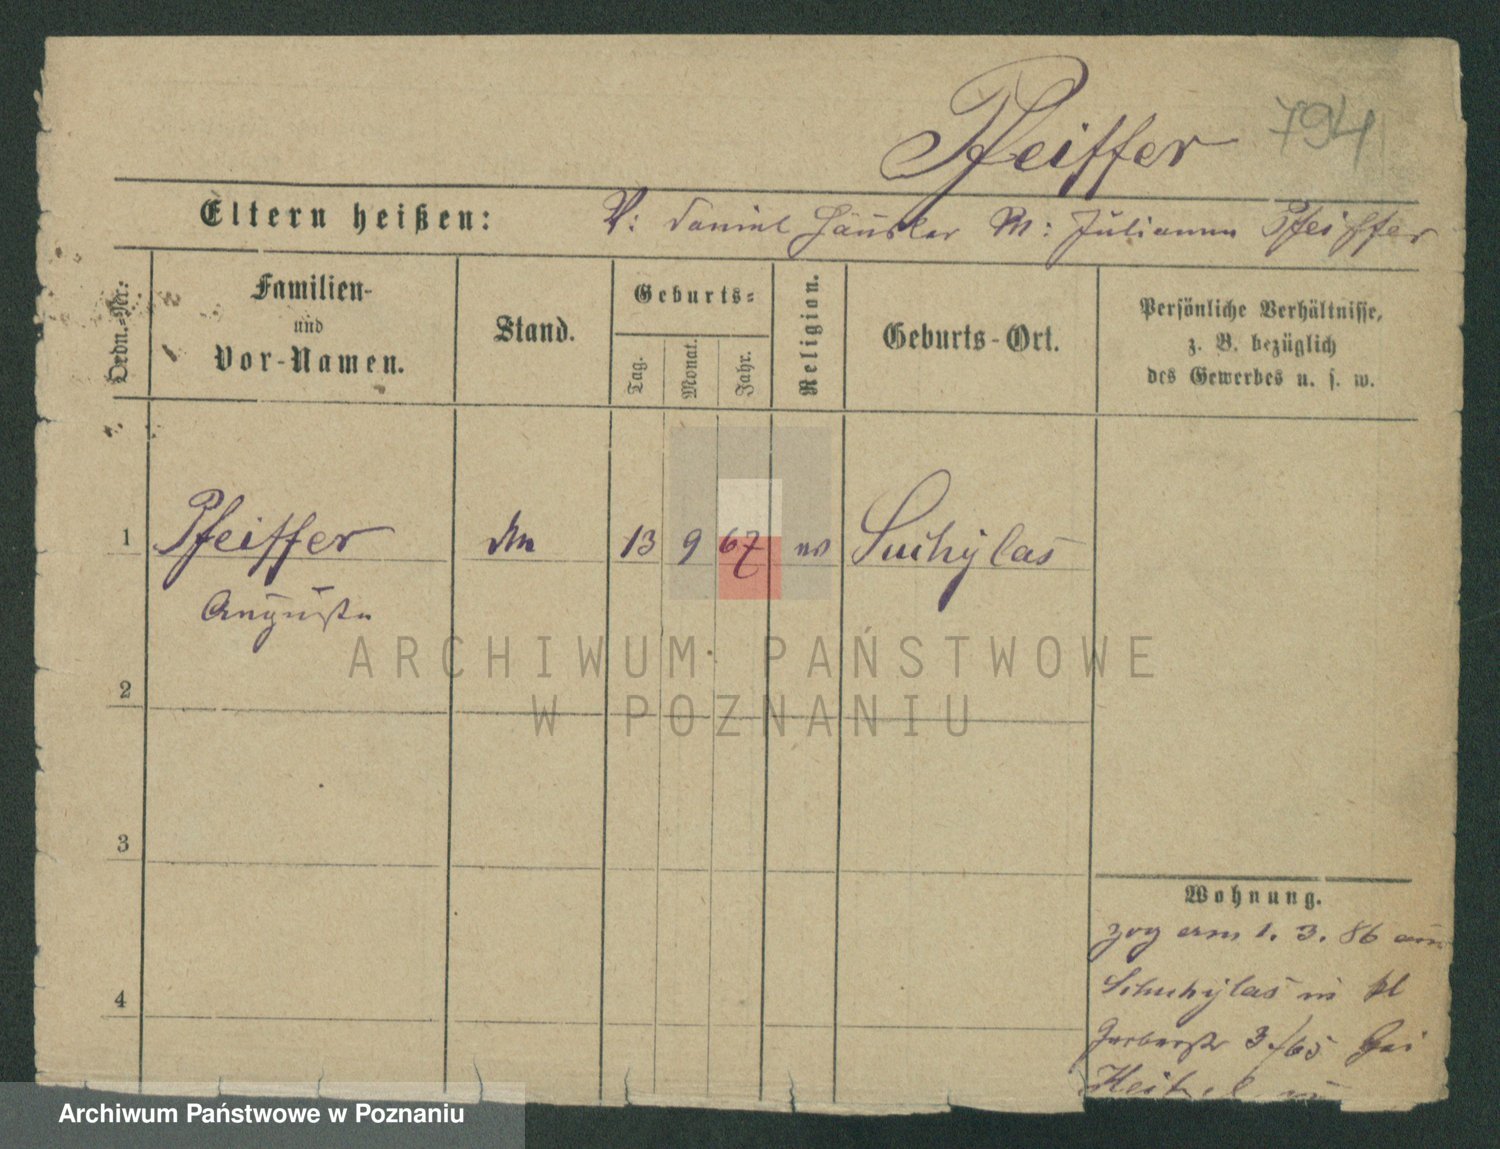 Pfeiffer 794
Eltern heißen: V: Daniel Häusler M: Julianna Pfeiffer
Ordn.-Nr.
Familien-
und
Vor-Namen.
Stand.
Geburts-
Tag.
Monat.
Jahr.
Religion.
Geburts-Ort.
Persönliche Verhältnisse,
z. B. bezüglich
des Gewerbes u. s. w.
1 Pfeiffer 13 9 67 ev Suchylas
Augusta
ARCHIWUM PAŃSTWOWE
W POZNANIU
2
3
4
Wohnung.
zog am 1. 3. 86 aus
Schuhylas in kl
Gerberstr 3/65 bei
Archiwum Państwowe w Poznaniu